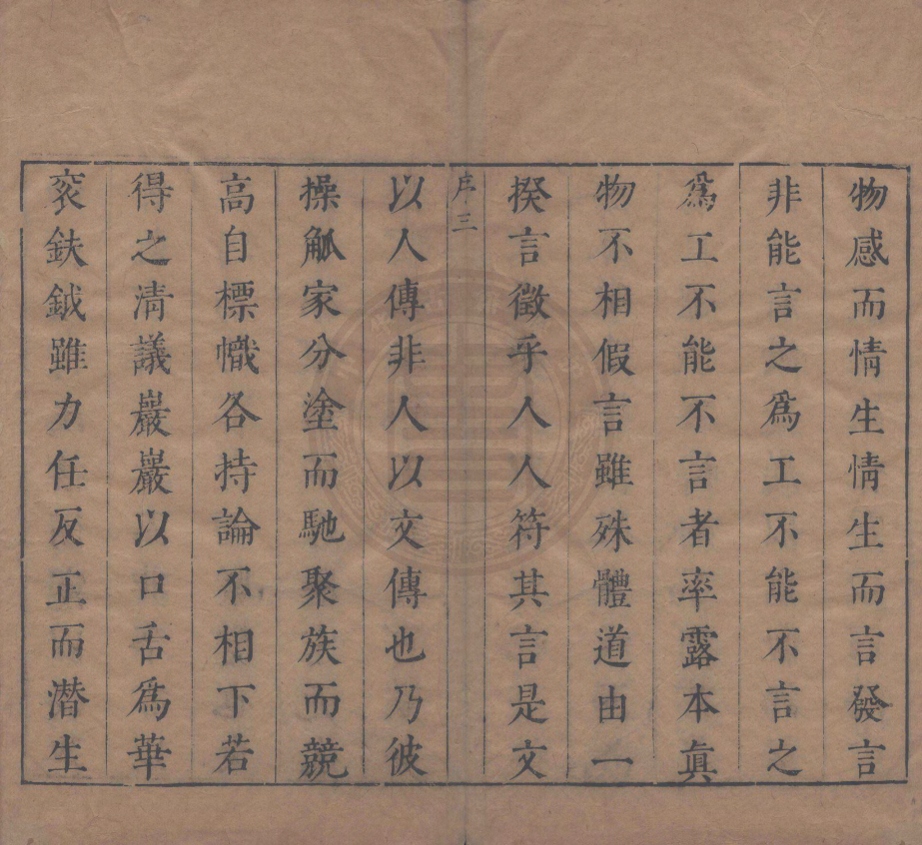 物感而情生情生而言發言
非能言之爲工不能不言之
爲工不能不言者率露本真
物不相假言雖殊體道由一
揆言徵乎人人符其言是文
序三
以人傳非人以文傳也乃彼
操觚家分塗而馳聚族而競
高自標幟各持論不相下若
得之清議巖巖以口舌爲華
衮鈇鉞雖力任反正而潛生